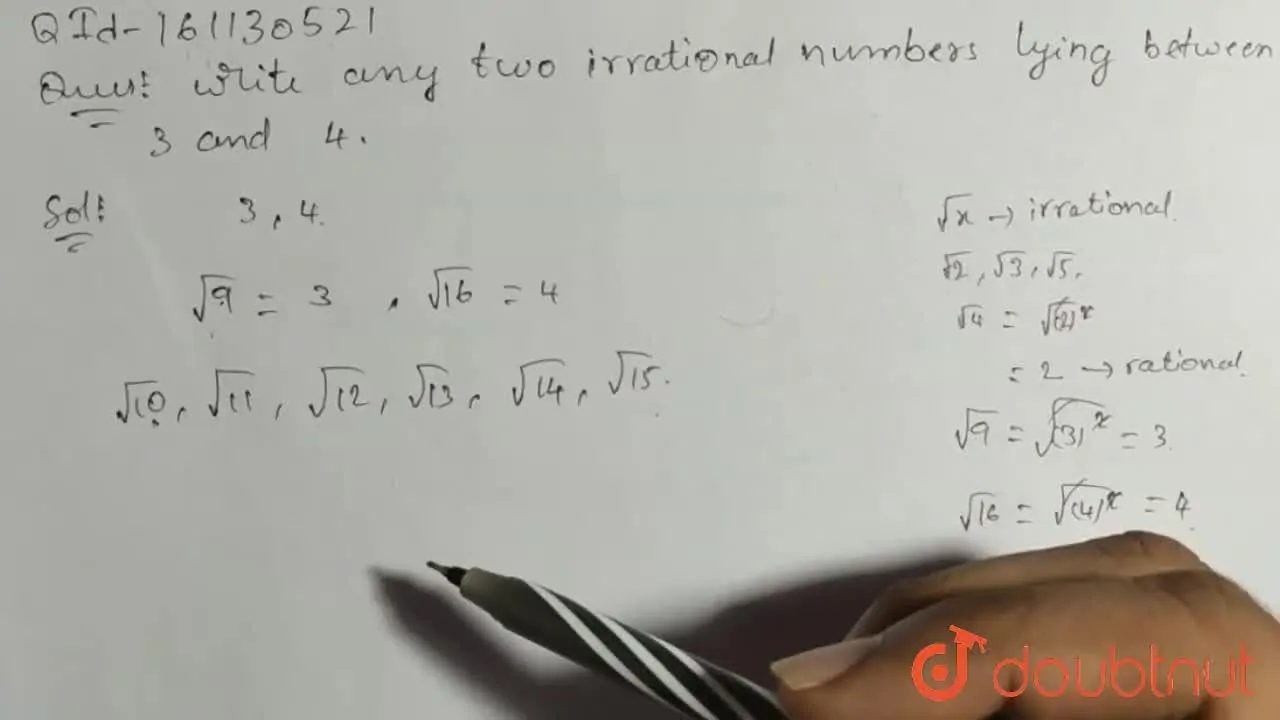 Q Id-161130521
Ques: write any two irrational numbers lying between
3 and 4.
Sol: 3, 4.
√9 = 3 , √16 = 4
√10, √11, √12, √13, √14, √15.
√x → irrational.
√2, √3, √5.
√4 = √(2)²
= 2 → rational.
√9 = √(3)² = 3.
√16 = √(4)² = 4.
doubtnut